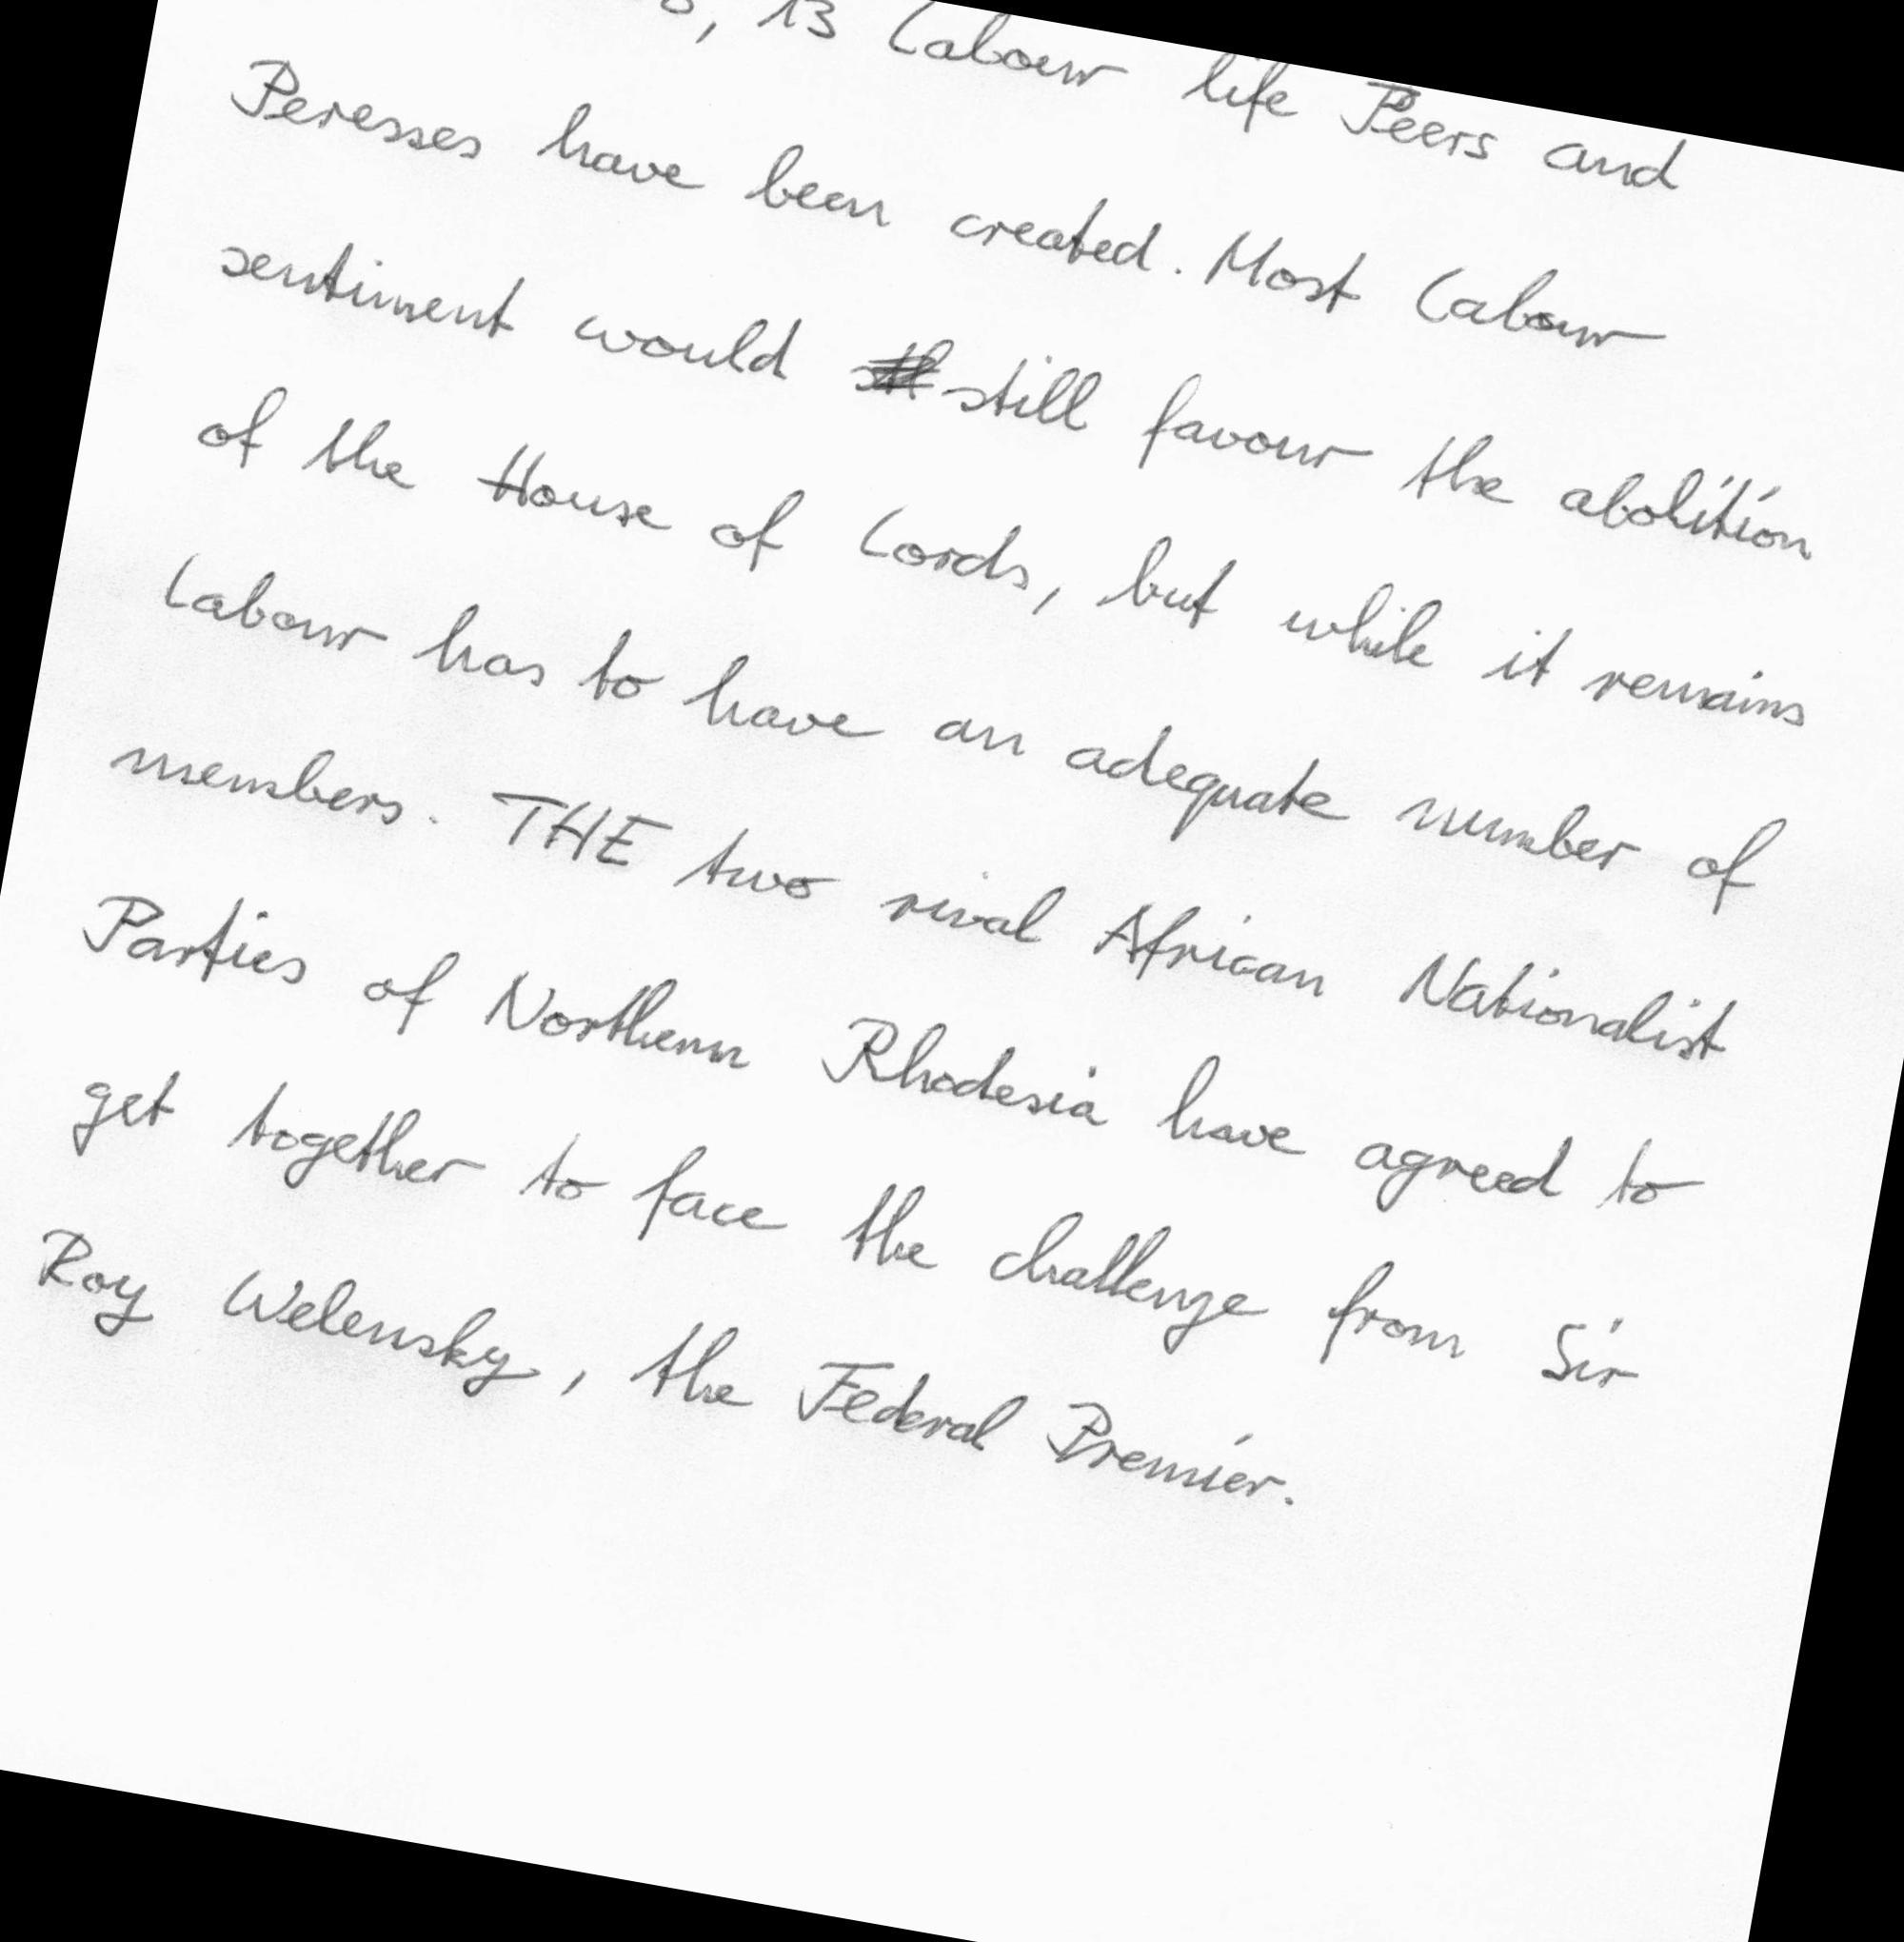 , 13 Labour life Peers and
Peresses have been created. Most Labour
sentiment would still favour the abolition
of the House of Lords, but while it remains
Labour has to have an adequate number of
members. THE two rival African Nationalist
Parties of Northern Rhodesia have agreed to
get together to face the challenge from Sir
Roy Welensky, the Federal Premier.